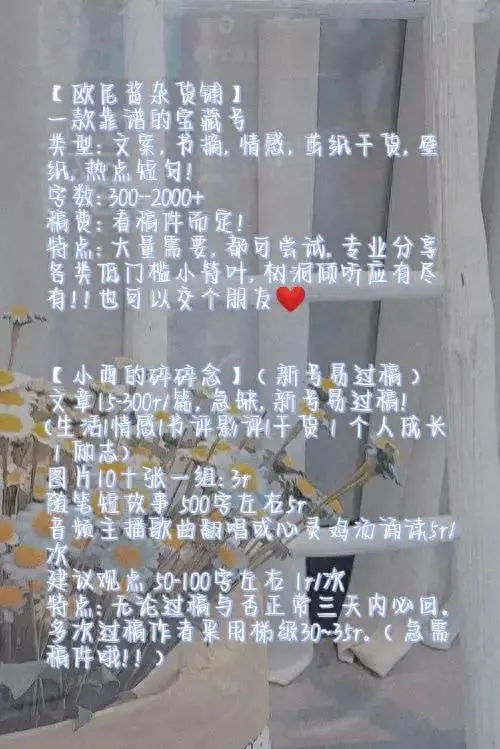 【欧尼酱杂货铺】
一款靠谱的宝藏号
类型: 文案, 书摘, 情感, 剪纸干货, 壁
纸, 热点短句!
字数: 300--2000+
稿费: 看稿件而定!
特点: 大量需要, 都可尝试, 专业分享
各类低门槛小替叶, 树洞倾听应有尽
有!! 也可以交个朋友❤️
【小酉的碎碎念】(新号易过稿)
文章15-300r/篇, 急缺, 新号易过稿!
(生活|情感|书评影评|干货|个人成长
|励志)
图片10十张一组: 3r
随笔短故事 500字左右5r
音频主播歌曲翻唱或心灵鸡汤诵读5r/
次
建议观点 50-100字左右 1r/次
特点: 无论过稿与否正常三天内必回。
多次过稿作者采用梯级30~35r。(急需
稿件哦!!)